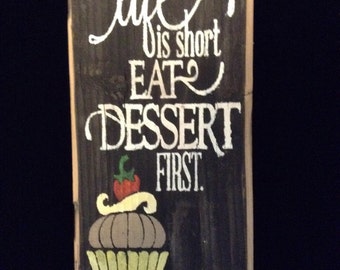 life
is short
EAT
DESSERT
FIRST.